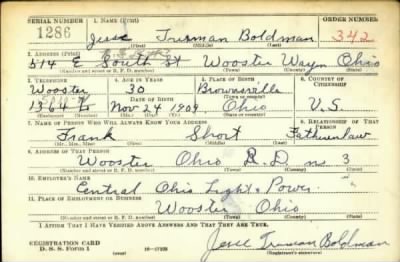 SERIAL NUMBER 1. NAME (Print) ORDER NUMBER
1286 Jesse Truman Boldman 342
(First) (Middle) (Last)
2. ADDRESS (Print)
514 E South St Wooster Wayn Ohio
(Number and street or R. F. D. number) (Town) (County) (State)
3. TELEPHONE 4. AGE IN YEARS 5. PLACE OF BIRTH 6. COUNTRY OF CITIZENSHIP
Wooster 30 Brownsville
DATE OF BIRTH (Town or county)
1364 L Nov 24 1909 Ohio U.S.
(Exchange) (Number) (Mo.) (Day) (Yr.) (State or country)
7. NAME OF PERSON WHO WILL ALWAYS KNOW YOUR ADDRESS 8. RELATIONSHIP OF THAT PERSON
Frank Short Fatherinlaw
(Mr., Mrs., Miss) (First) (Middle) (Last)
9. ADDRESS OF THAT PERSON
Wooster Ohio R.D. no 3
(Number and street or R. F. D. number) (Town) (County) (State)
10. EMPLOYER'S NAME
Central Ohio Light & Power
11. PLACE OF EMPLOYMENT OR BUSINESS
Wooster Ohio
(Number and street or R. F. D. number) (Town) (County) (State)
I AFFIRM THAT I HAVE VERIFIED ABOVE ANSWERS AND THAT THEY ARE TRUE.
REGISTRATION CARD
D. S. S. Form 1 (over) Jesse Truman Boldman
(Registrant's signature)